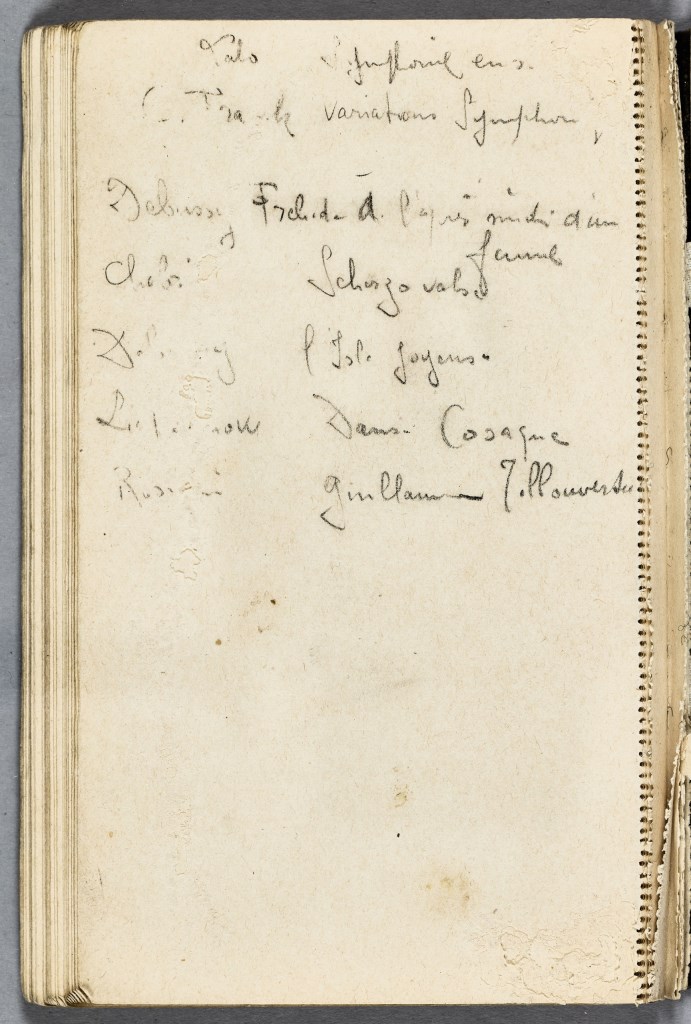 Lalo Symphonie en
C. Franck Variations Symphon
Debussy Prelude à l'après midi d'un
faune
Chabri Scherzo valse
Debussy l'Isle Joyeuse
Danse Cosaque
Rossini Guillaume Tell ouverture